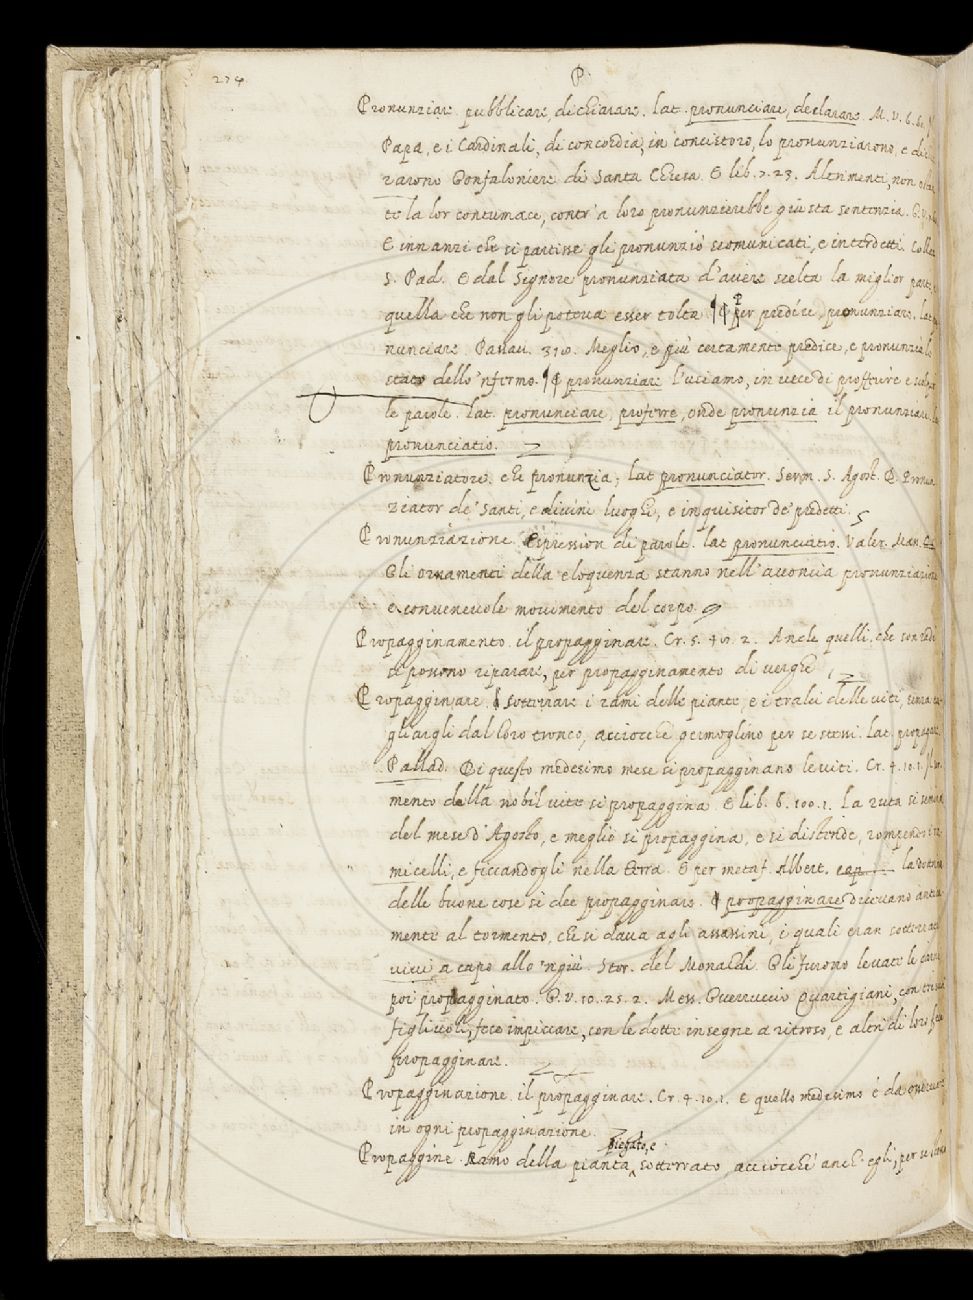 274
P.
Pronunziare pubblicare, dichiarare. lat. pronunciare, declarare. M. V. 6.
Papa, e i Cardinali, di concordia, in concistoro, lo pronunziarono, e dic
rarono Gonfaloniere di Santa Chiesa. E lib. 7. 23. Altrimenti, non osta
te la lor contumace, contr'a loro pronunzierebbe giusta sentenzia. G. V.
E innanzi che si partisse gli pronunziò scomunicati, e interdetti. Collaz
S. Pad. E dal Signore pronunziata d'avere scelta la miglior parte
quella che non gli poteva esser tolta ¶ Per predire, pronunziare. lat.
nunciare Passav. 310. Meglio, e più certamente predice, e pronunzia lo
stato dello 'nfermo. ¶ pronunziare l'usiamo, in vece di profferire e
le parole. lat. pronunciare, proferre, onde pronunzia il pronunziare,
pronunciatio.
Pronunziatore. che pronunzia, lat pronunciator. Serm. S. Agost. D. Pronun
ziator de' santi, e divini luoghi, e inquisitor de' predetti.
Pronunziazione. Espression di parole. lat pronunciatio. Valer. Mass.
Gli ornamenti della eloquenza stanno nell'acconcia pronunziazione
e convenevole movimento del corpo.
Propagginamento. il propagginare. Cr. 5. 40. 2. Anche quelli, che con radi
si possono riparare, per propagginamento di verghe
Propagginare. sotterrare i rami delle piante, e i tralci delle viti, senza ta
gliargli dal loro tronco, acciocchè germoglino per se stessi. Lat. propagare
Pallad. Di questo medesimo mese si propagginano le viti. Cr. 4. 10. 1.
mento della nobil vite si propaggina. E lib. 6. 100. 1. La ruta si semina
del mese d'Agosto, e meglio si propaggina, e si distende, rompendo i ra
micelli, e ficcandogli nella terra. E per metaf. Albert. cap la dottrina
delle buone cose si dee propagginare. ¶ propagginare dicevano antica
mente al tormento, che si dava agli assassini, i quali eran sotterrati
vivi, a capo allo 'ngiù. Stor. del Monaldi. Gli furono levate le carni
poi propagginato. G. V. 10. 25. 2. Mess. Guerruccio Quartigiani, con tre suoi
figliuoli, fece impiccare, con le dette insegne a ritroso, e altri di loro fece
propagginare.
Propagginazione. il propagginare. Cr. 4. 10. 1. E quello medesimo è da osservare
in ogni propagginazione.
piegato, e
Propaggine. Ramo della pianta sotterrato, acciocchè anch'egli, per se stesso